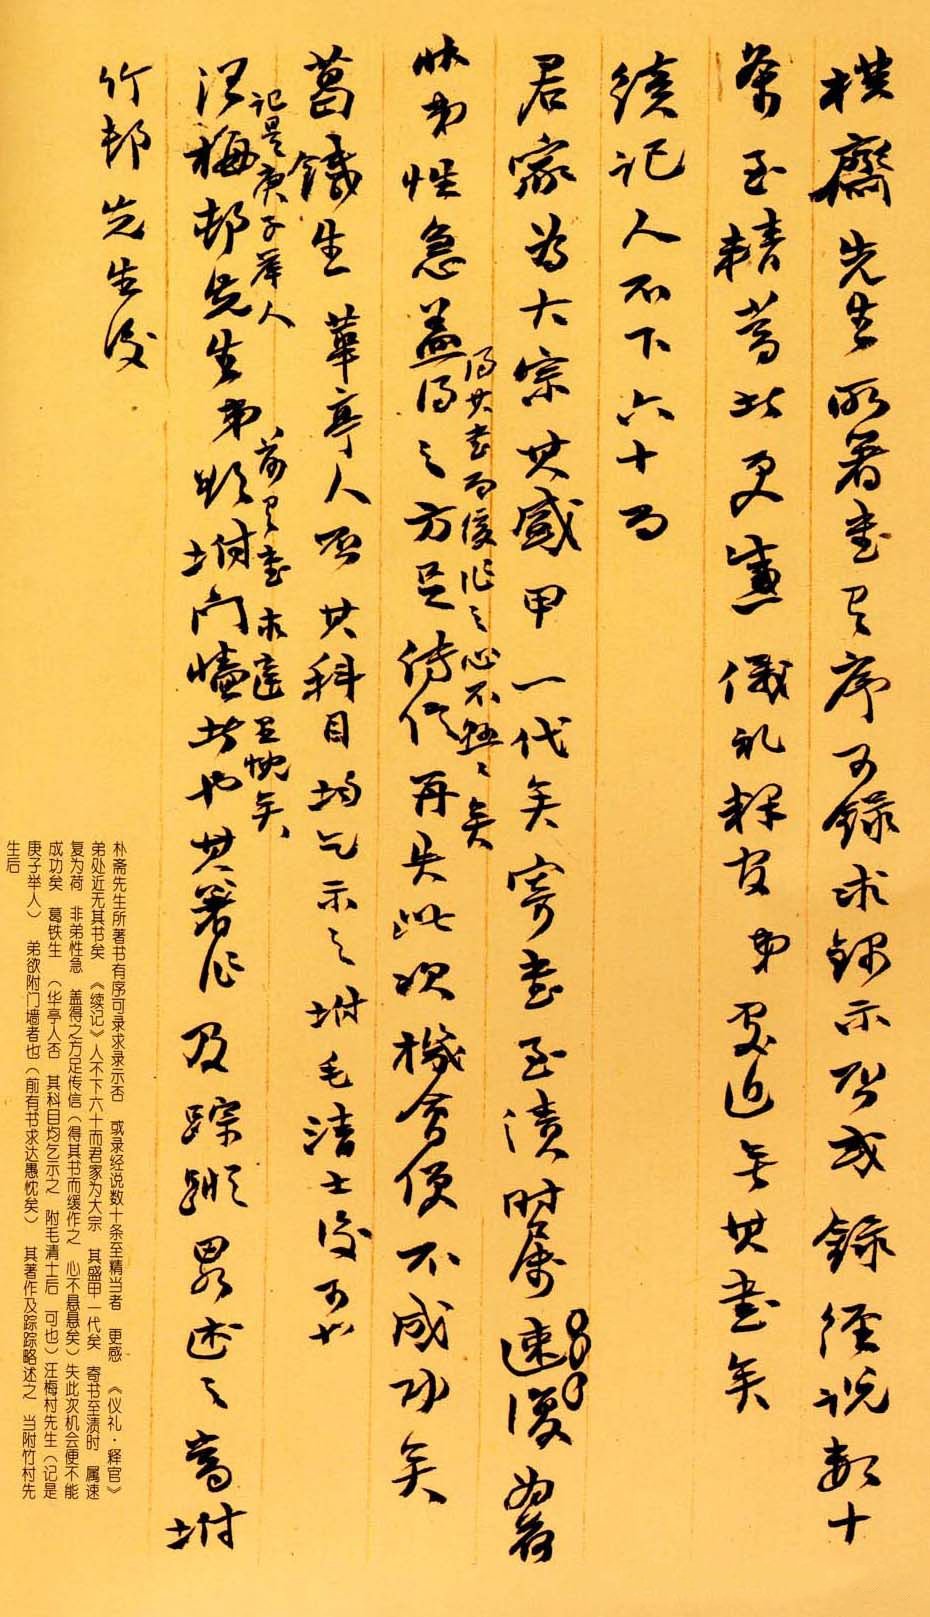 樸齋先生所著書有序可錄求錄示否或錄經説數十
條至精當者更感儀禮釋官弟處近無其書矣
續記人不下六十而
君家為大宗其盛甲一代矣寄書至漬時屬速復為荷
非弟性急蓋得之方足傳信再失此次機會便不成功矣
得其書而緩作之心不懸懸矣
葛鐵生華亭人否其科目均乞示之坿毛清士後可也
記是庚子舉人
汪梅邨先生弟欲坿門牆者也其著作及踪蹤畧述之當坿
前有書求達愚忱矣
竹邨先生後
朴斋先生所著书有序可录求录示否 或录经说数十条至精当者 更感 《仪礼·释官》
弟处近无其书矣 《续记》人不下六十而君家为大宗 其盛甲一代矣 寄书至渍时 属速
复为荷 非弟性急 盖得之方足传信（得其书而缓作之 心不悬悬矣）失此次机会便不能
成功矣 葛铁生 （华亭人否 其科目均乞示之 附毛清士后 可也）汪梅村先生（记是
庚子举人） 弟欲附门墙者也（前有书求达愚忱矣） 其著作及踪踪略述之 当附竹村先
生后